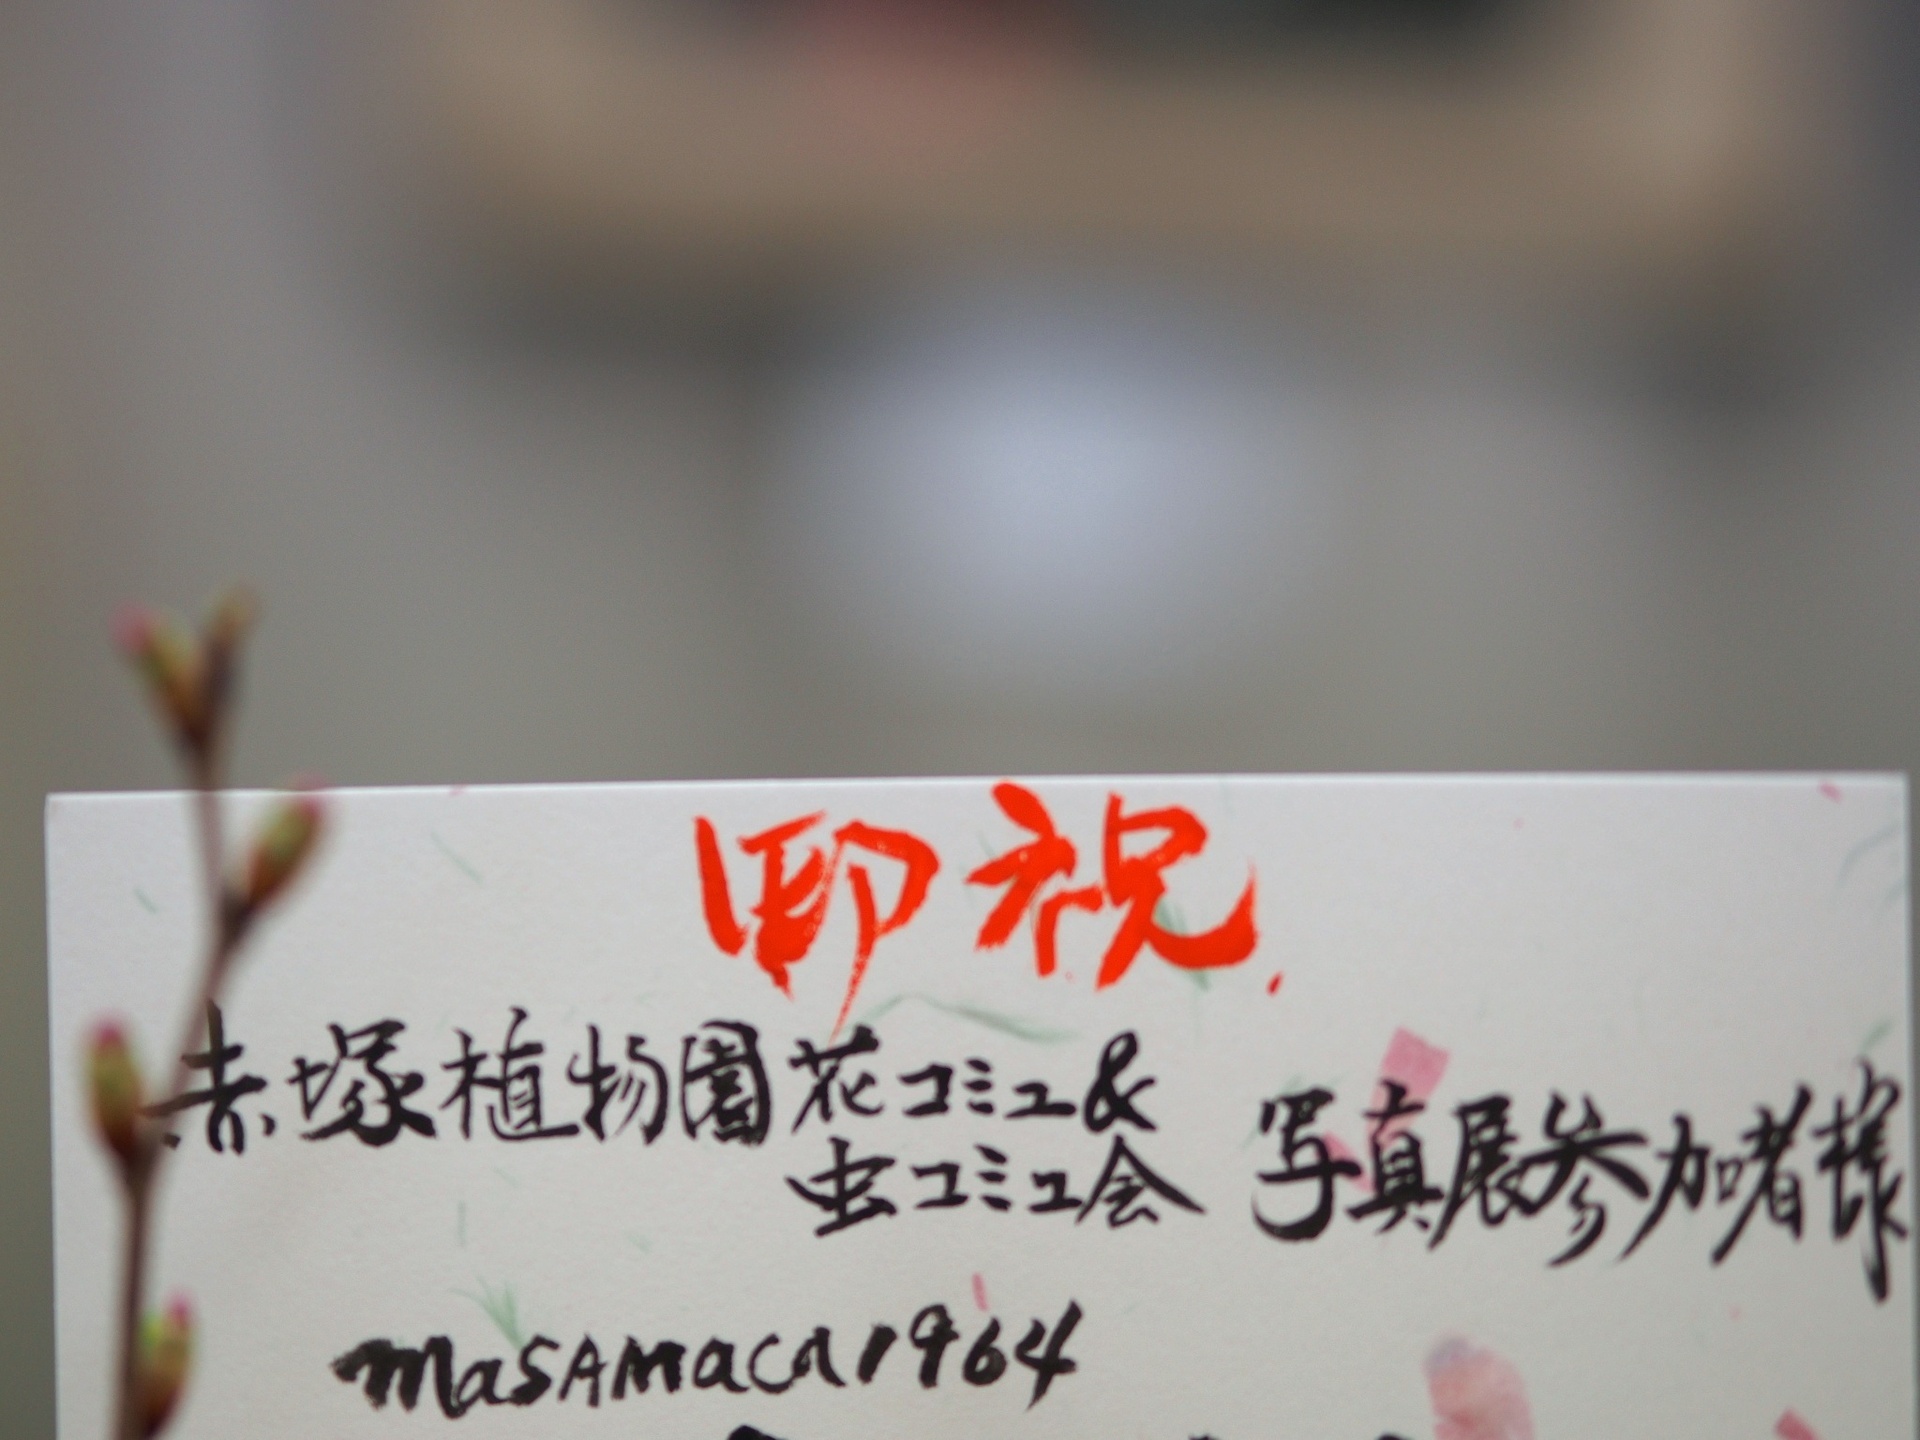 御祝
赤塚植物園花コミュ&
虫コミュ会
写真展参加者様
masamaca1964